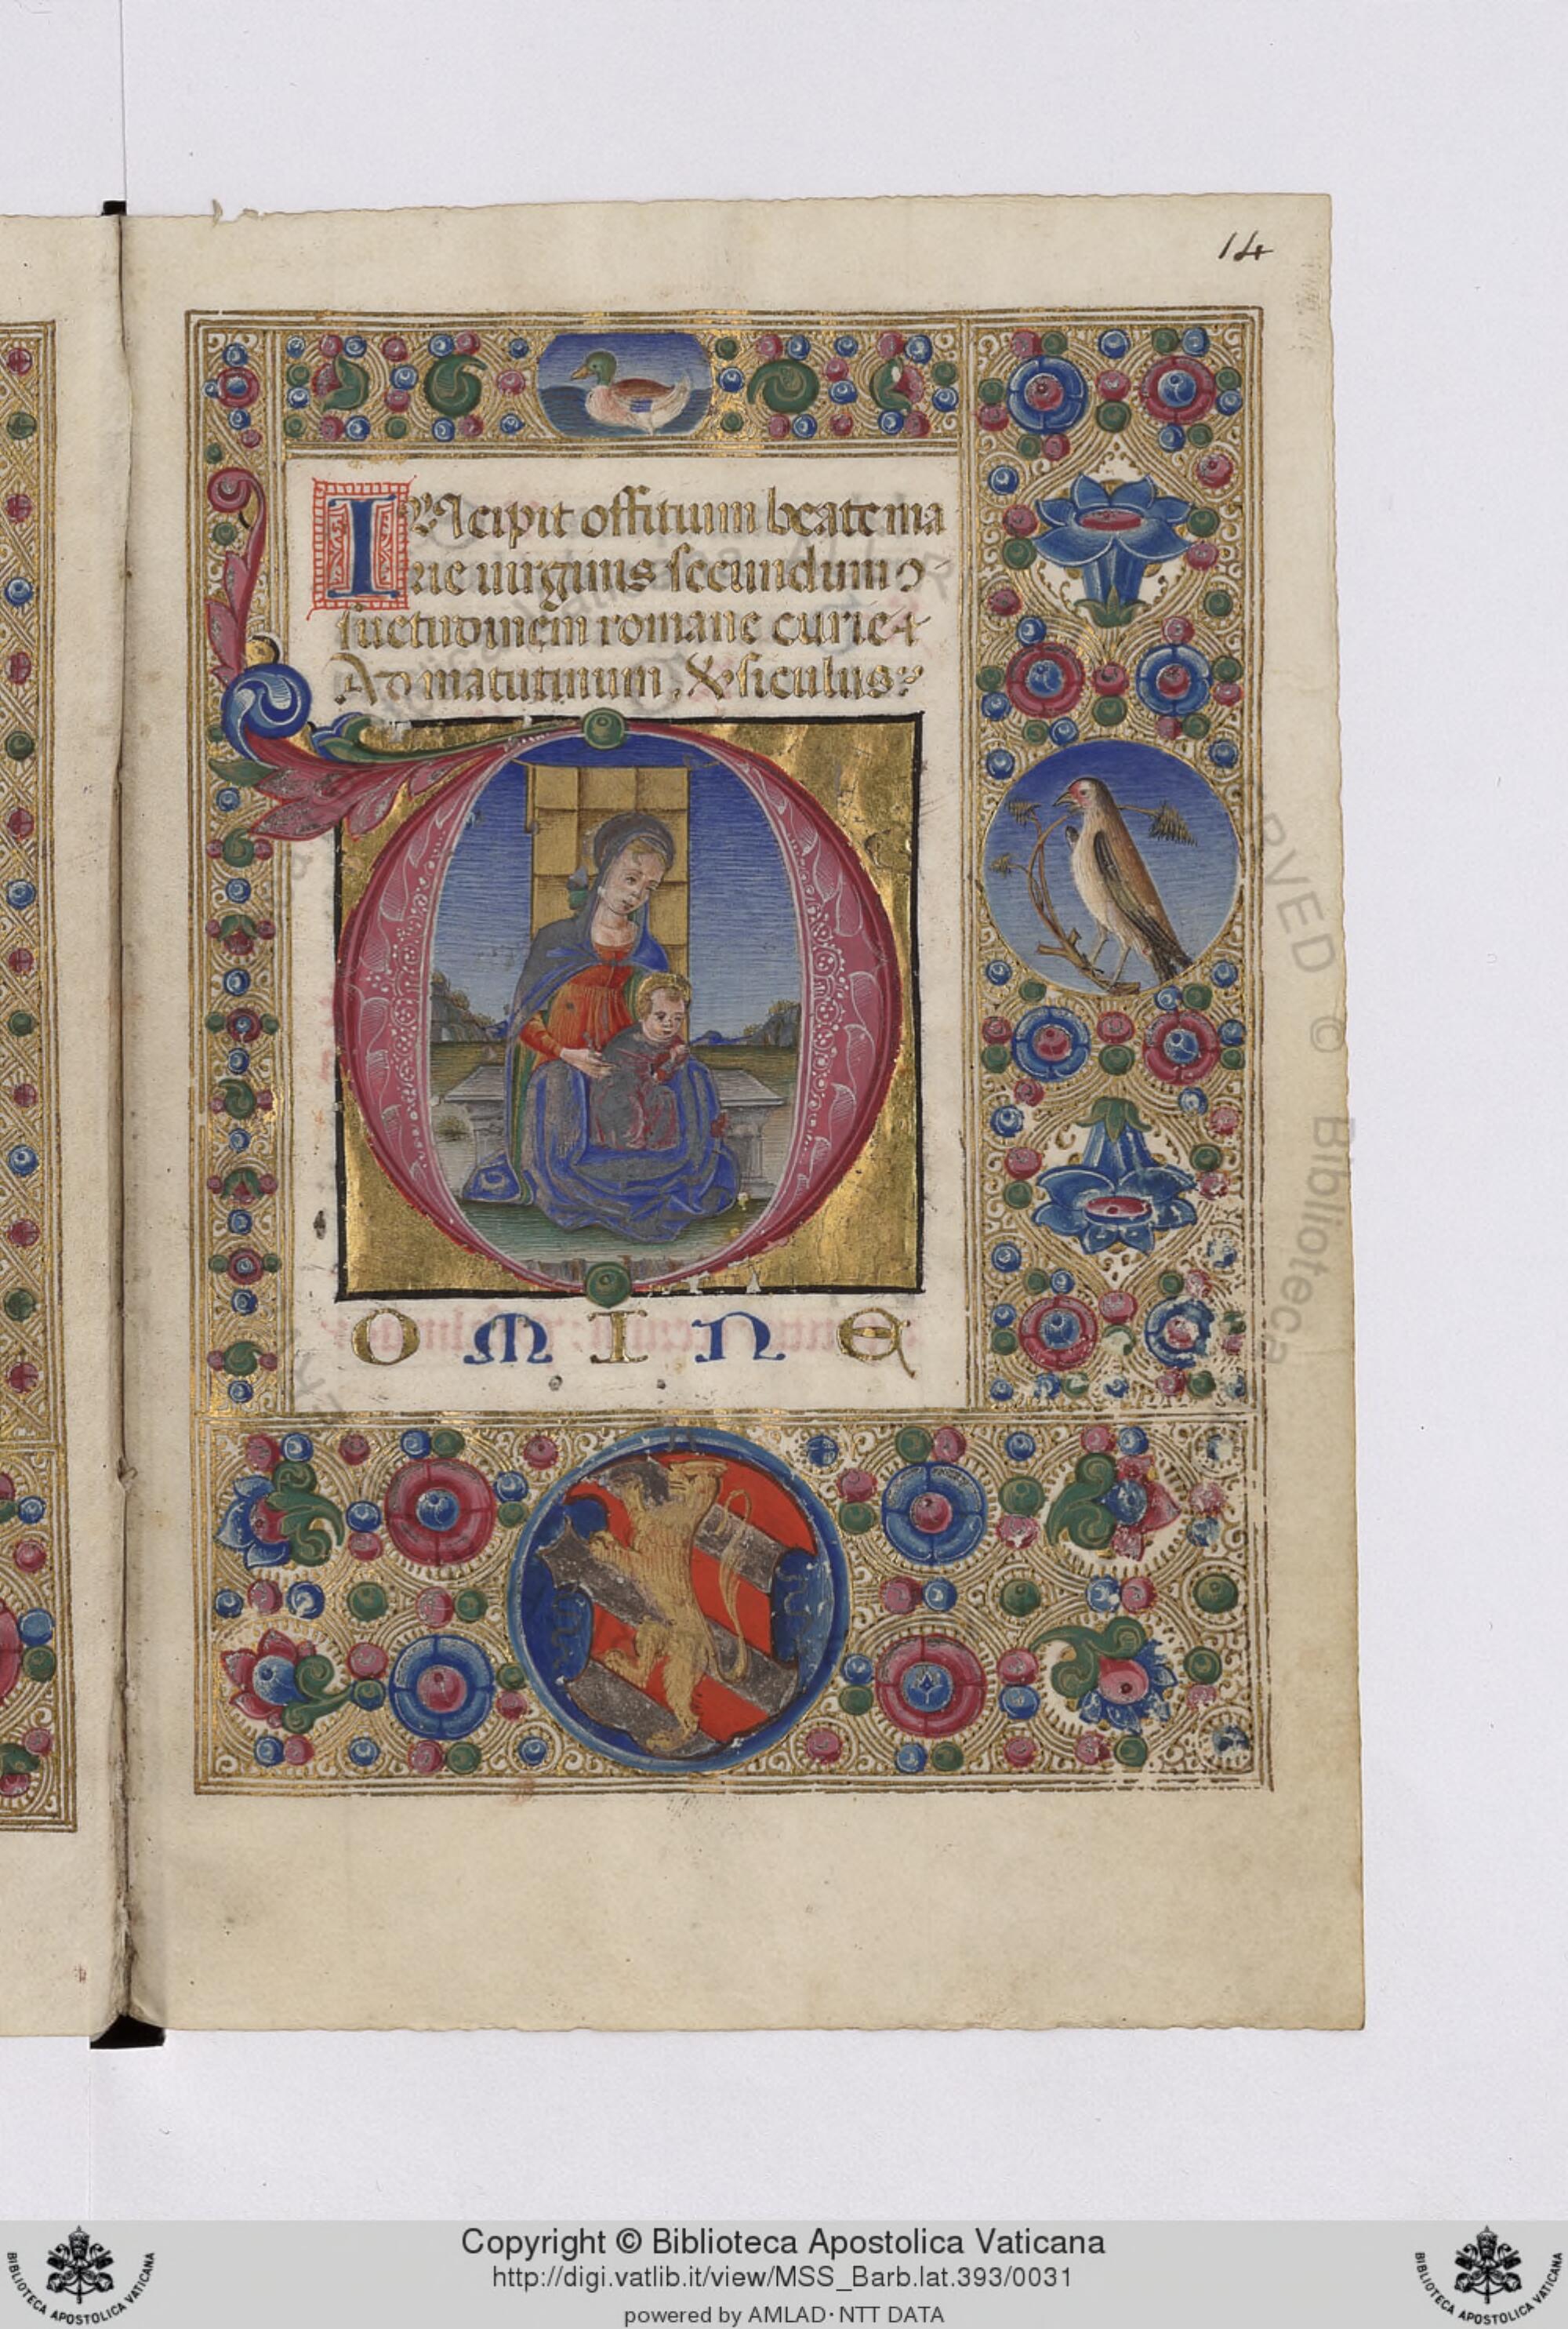 14
INcipit offitium beate ma
rie uirginis secundum ɔ-
suetudinem romane curie.
Ad matutinum. Versiculus.
D
OMINE
RVED © Biblioteca
Copyright © Biblioteca Apostolica Vaticana
http://digi.vatlib.it/view/MSS_Barb.lat.393/0031
powered by AMLAD·NTT DATA
BIBLIOTECA APOSTOLICA VATICANA
BIBLIOTECA APOSTOLICA VATICANA